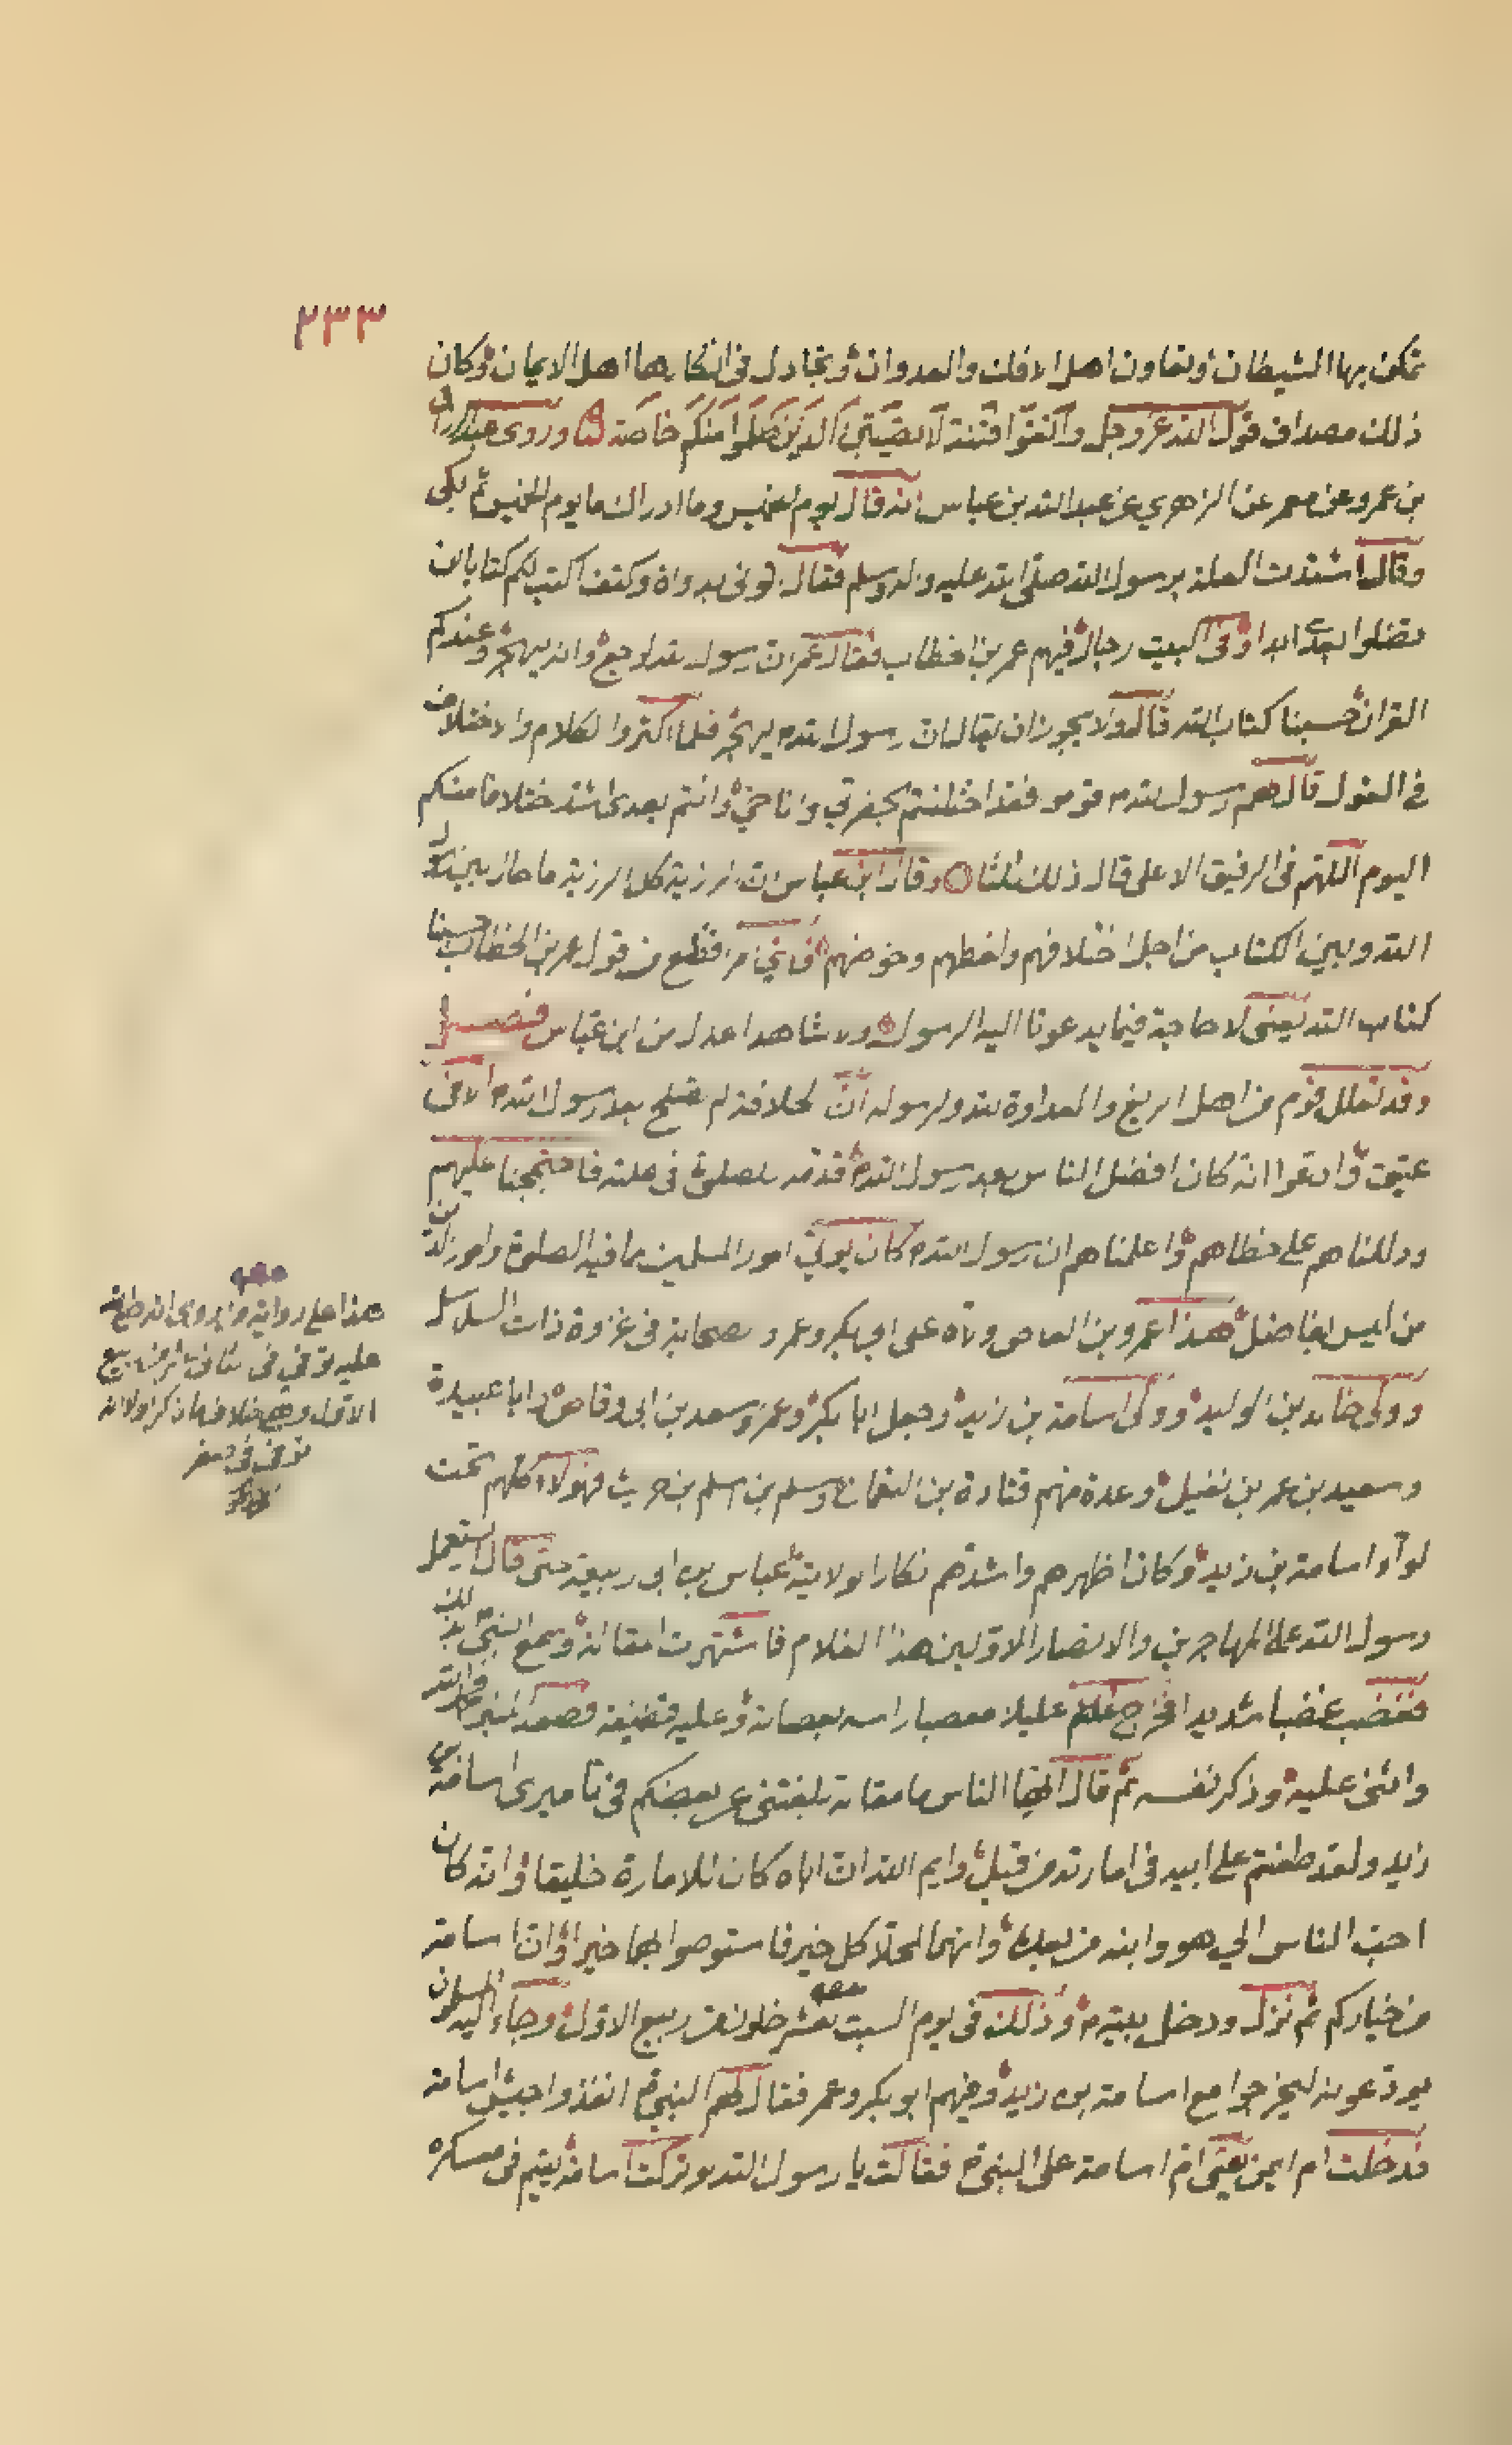 ٢٣٣
تمكن بها الشيطان وتعاون اهل الافك والعدوان وتجادل فى انكارها اهل الايمان وكان
ذلك مصداق قول الله عز وجل واتقوا فتنة لا تصيبن الذين ظلموا منكم خاصة وروى عبد الرزاق
بن عمرو عن معمر عن الزهري عن عبد الله بن عباس انه قال يوم الخميس وما ادراك ما يوم الخميس ثم بكى
وقال اشتدت العلة برسول الله صلى الله عليه واله وسلم فقال ائتونى بدواة وكتف اكتب لكم كتابا لن
تضلوا بعده ابدا وفى البيت رجال فيهم عمر بن الخطاب فقال عمر ان رسول الله لوجع وانه يهجر وعندكم
القران حسبنا كتاب الله قال ولا يجوز ان يقال ان رسول الله يهجر فلما اكثروا الكلام والاختلاف
في القول قال لهم رسول الله قوموا فقد اختلفتم بحضرتي وانا حي وانتم بعدى اشد اختلافا منكم
اليوم اللهم فى الرفيق الاعلى قال ذلك ثلثا وقال ابن عباس ان الرزية كل الرزية ما حال بين رسول
الله وبين الكتاب من اجل اختلافهم ولغطهم وخوضهم فاي امر افظع من قول عمر بن الخطاب حسبنا
كتاب الله يعنى لا حاجة فيما يدعونا اليه الرسول ولا شاهدا اعدل من ابن عباس فصل
وقد تعلل قوم من اهل الزيغ والعداوة لله ولرسوله ان الخلافة لم تصلح بعد رسول الله الا فى
عتيق وادعوا انه كان افضل الناس بعد رسول الله قدمه للصلوة فى علته فاحتججنا عليهم
ودللناهم على خطاهم واعلمناهم ان رسول الله كان يولي امور المسلمين بما فيه الصلوة وامور الدين
من ليس بفاضل هذا عمرو بن العاص ولاه على ابى بكر وعمر و صحابة فى غزوة ذات السلاسل
وولى خالد بن الوليد وولى اسامة بن زيد وجعل ابا بكر وعمر وسعد بن ابى وقاص وابا عبيدة
وسعيد بن عمر بن نفيل وعدة منهم قتادة بن النعمان وسلم بن اسلم بن حريث فهولاء كلهم تحت
لوآء اسامة بن زيد وكان اظهرهم واشدهم نكارا لولايته عباس بن ابى ربيعة حتى قال استعمل
رسول الله على المهاجرين والانصار الاولين هذا الغلام فاشتهرت مقالته وسمع النبي بذلك
فغضب غضبا شديدا فخرج عليلا معصبا راسه بعصابة وعليه قطيفة فصعد المنبر فحمد الله
واثنى عليه وذكر نفسه ثم قال ايها الناس ما مقالة بلغتنى عن بعضكم فى تاميرى اسامة بن
زيد ولقد طعنتم على ابيه فى امارته من قبل وايم الله ان اباه كان للامارة خليقا وانه كان
احب الناس الي هو وابنه من بعده وانهما لمحلا كل خير فاستوصوا بهما خيرا وان اسامة
من خياركم ثم نزل ودخل بيته وذلك فى يوم السبت لعشر خلون من ربيع الاول وجاء اليه المسلمون
يودعونه ليخرجوا مع اسامة بن زيد وفيهم ابو بكر وعمر فقال لهم النبي انفذوا جيش اسامة
فدخلت ام ايمن يعنى ام اسامة على النبي فقالت يا رسول الله لو تركت اسامة يقيم فى معسكره
هذا على رواية من يروى انه
عليه توفي في ثانى عشر من ربيع
الاول وهى خلاف ما ذكر اولا انه
توفى فى صفر